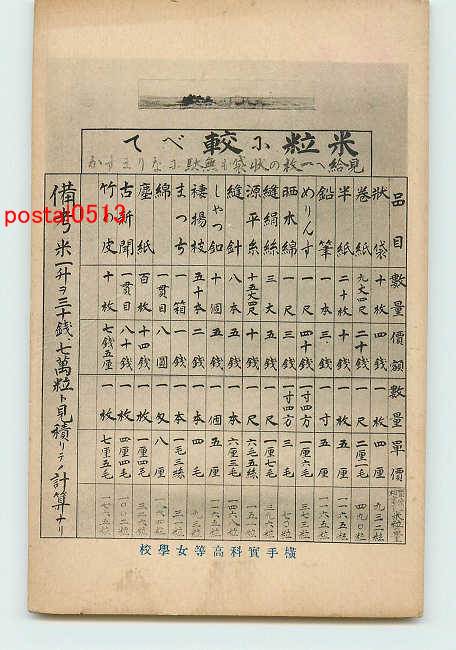 米粒に較べて
品目 數量 價額 數量 單價
狀袋 十枚 四錢 一枚 四厘 九三二粒
卷紙 九丈四尺 二十錢 一尺 二厘一毛 四九〇粒
半紙 二十枚 十錢 一枚 五厘 一一六五粒
鉛筆 一本 三錢 一寸 五厘 一一六五粒
めりんす 一尺 四十錢 一寸四方
晒木綿 一尺 三錢 一寸四方 三毛 七〇粒
縫絹絲 三丈 五錢 一尺 一厘七毛 三九六粒
源平糸 十五丈四尺 十錢 一尺 六毛五絲 一五一粒
縫針 八本 五錢 一本 六厘三毛 一四六八粒
しやつ釦 十個 五錢 一個 五厘
棲揚枝 五十本 二錢 一本 四毛 九三粒
まつち 一箱 一錢 一本 一毛三絲 三一粒
綿 一貫目 八圓 一匁 八厘
塵紙 百枚 十四錢 一枚 一厘四毛 三二六粒
古新聞 一貫目 八十錢 一枚 四厘四毛 一〇二二粒
竹の皮 十枚 七錢五厘 一枚 七厘五毛 一七六五粒
備考 米一升ヲ三十錢、七萬粒ト見積リテノ計算ナリ
橫手實科高等女學校
postal0513